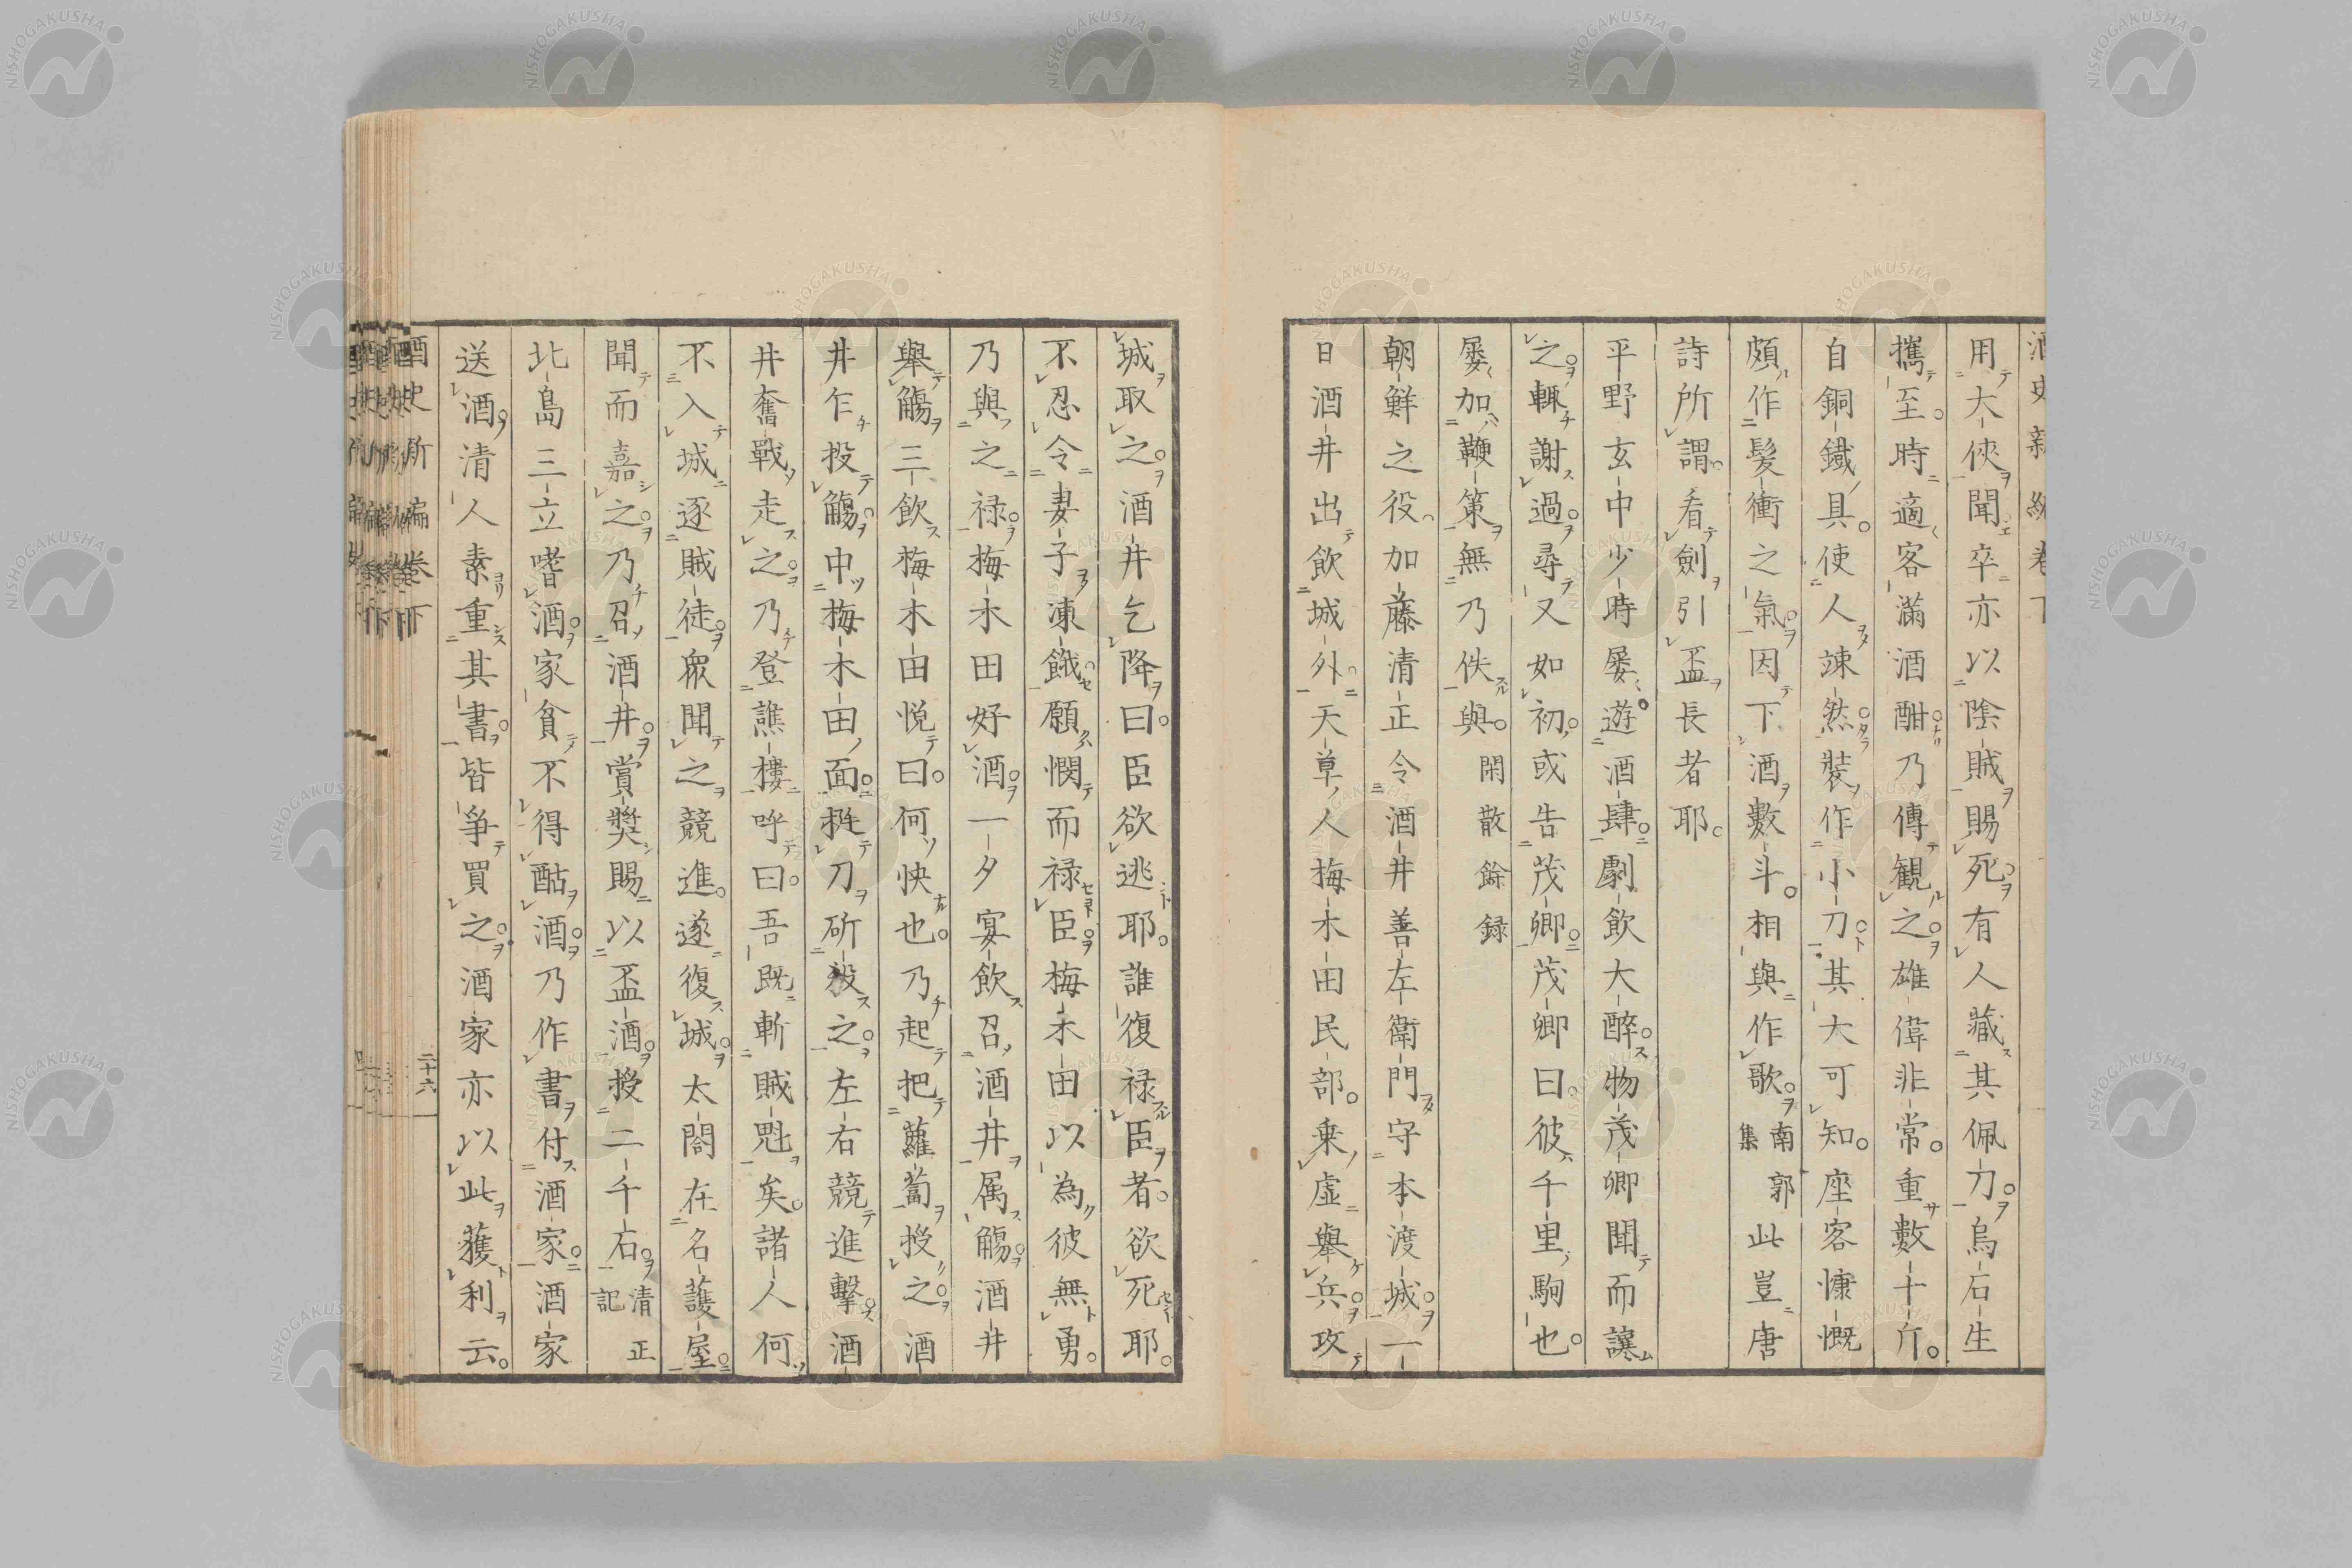 用大俠聞卒亦以陰賊賜死。有人藏其佩刀。烏石生
攜至。時適客滿酒酣。乃傳観之。雄偉非常。重數十斤。
自銅鐵具。使人竦然。裝作小刀。其大可知。座客慷慨
頗作髮衝之氣。因下酒數斗。相與作歌。南郭集此豈唐
詩所謂。看劍引盃長者耶。
平野玄中少時屡遊酒肆。劇飲大醉。物茂卿聞而讓
之。輒謝過。尋又如初。或告茂卿。茂卿曰。彼千里駒也。
屡加鞭策無乃佚與。閑散餘録
朝鮮之役加藤清正令酒井善左衛門守本渡城。一
日酒井出飲城外。天草人梅木田民部。乗虚舉兵。攻
城取之。酒井乞降。曰。臣欲逃耶。誰復禄臣者。欲死耶。
不忍令妻子凍餓。願憫而禄臣。梅木田以為彼無勇。
乃與之禄。梅木田好酒。一夕宴飲召酒井属觴。酒井
舉觴三飲。梅木田悦曰。何快也。乃起把蘿蔔授之。酒
井乍投觴。中梅木田面。挺刀斫殺之。左右競進擊。酒
井奮戰走之。乃登譙樓呼曰。吾既斬賊魁矣。諸人何
不入城逐賊徒。衆聞之競進。遂復城。太閤在名護屋。
聞而嘉之。乃召酒井。賞奬賜以盃酒。授二千石。清正記
北島三立嗜酒。家貧不得酤酒。乃作書付酒家。酒家
送酒。清人素重其書。皆爭買之。酒家亦以此獲利云。
酒史新編卷下
二十六